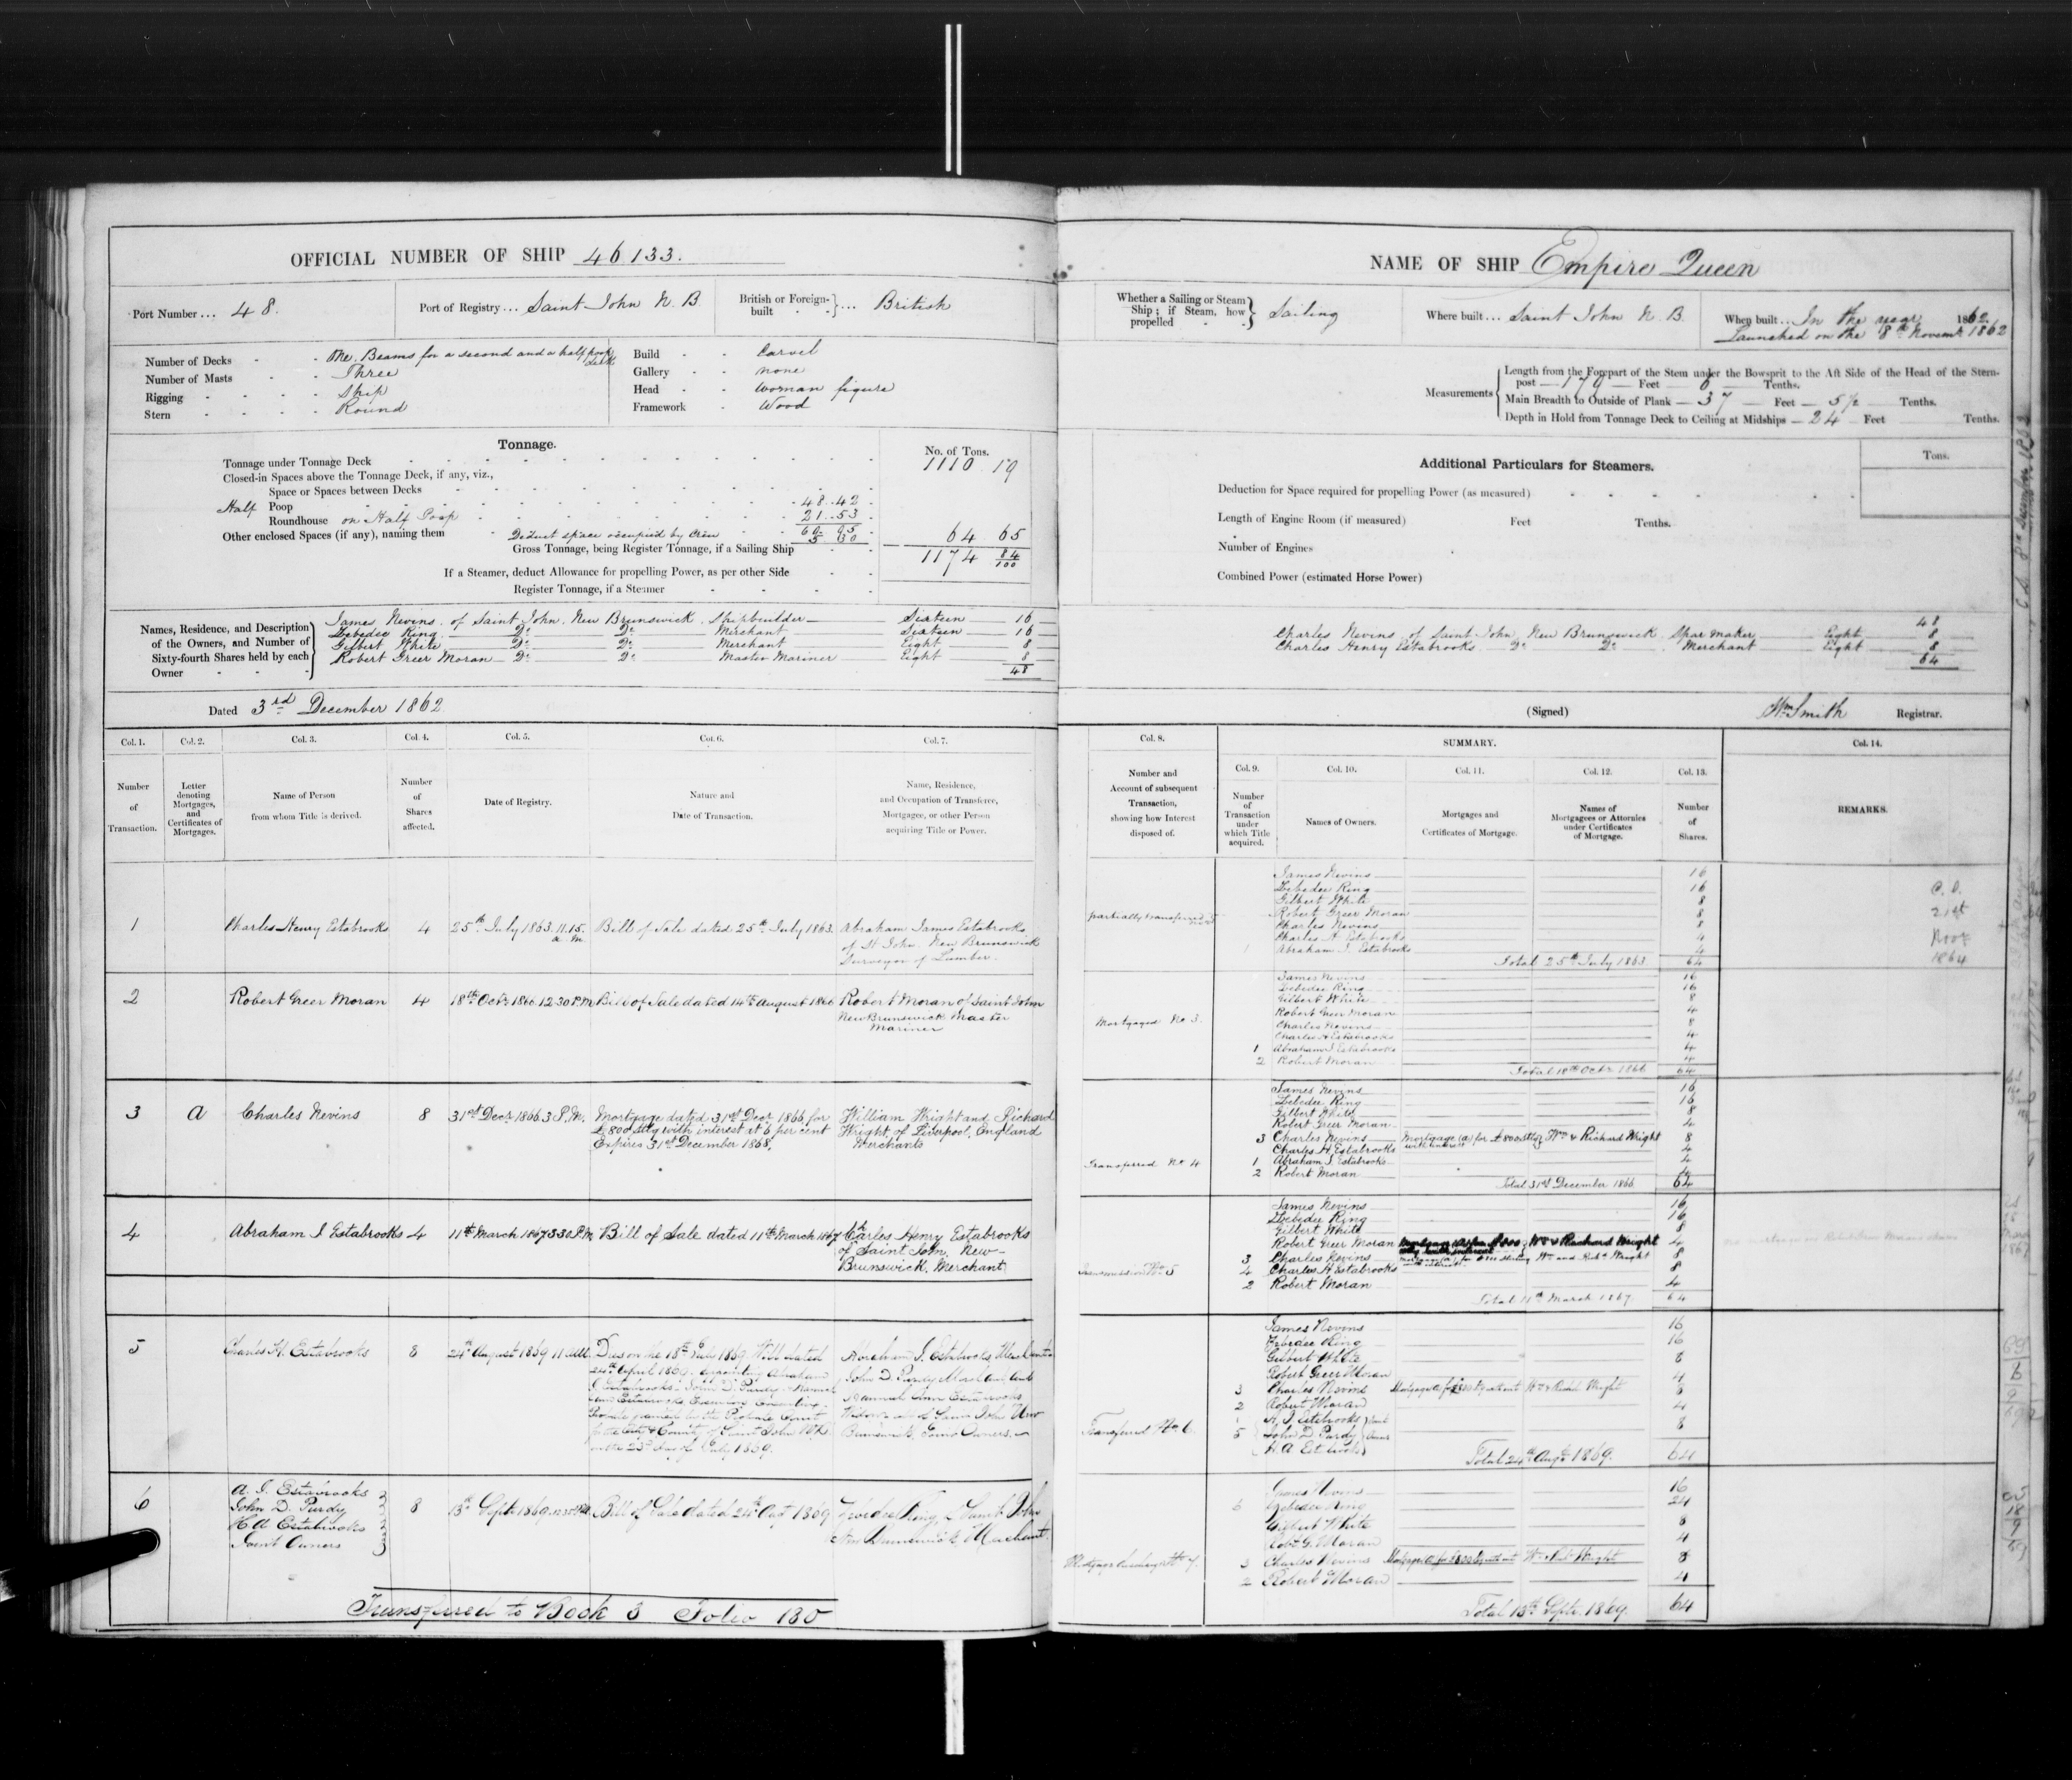 OFFICIAL NUMBER OF SHIP 46133.
Port Number... 48.
Port of Registry... Saint John N. B.
British or Foreign-built ... British
Number of Decks - One. Beams for a second and a half poop deck
Number of Masts - Three
Rigging - Ship
Stern - Round
Build - Carvel
Gallery - none
Head - Woman figure
Framework - Wood
Tonnage.
No. of Tons.
Tonnage under Tonnage Deck 1110 19
Closed-in Spaces above the Tonnage Deck, if any, viz.,
Space or Spaces between Decks
Half Poop 48..42
Roundhouse on Half Poop 21..53
69 95
Other enclosed Spaces (if any), naming them Deduct space occupied by Crew 5 30 64 65
Gross Tonnage, being Register Tonnage, if a Sailing Ship 1174 84/100
If a Steamer, deduct Allowance for propelling Power, as per other Side
Register Tonnage, if a Steamer
Names, Residence, and Description of the Owners, and Number of Sixty-fourth Shares held by each Owner
James Nevins of Saint John, New Brunswick, Shipbuilder Sixteen 16
Zebedee Ring Do Do Merchant Sixteen 16
Gilbert White Do Do Merchant Eight 8
Robert Greer Moran Do Do Master Mariner Eight 8
48
Dated 3rd December 1862
Col. 1. Col. 2. Col. 3. Col. 4. Col. 5. Col. 6. Col. 7.
Number of Transaction.
Letter denoting Mortgages, and Certificates of Mortgages.
Name of Person from whom Title is derived.
Number of Shares affected.
Date of Registry.
Nature and Date of Transaction.
Name, Residence, and Occupation of Transferee, Mortgagee, or other Person acquiring Title or Power.
1 Charles Henry Estabrooks 4 25th July 1863. 11.15. a.m. Bill of Sale dated 25th July 1863. Abraham James Estabrooks
of St John New Brunswick
Surveyor of Lumber.
2 Robert Greer Moran 4 18th Octr 1866. 12.30 P.M. Bill of Sale dated 14th August 1866 Robert Moran of Saint John
New Brunswick Master
Mariner
3 A Charles Nevins 8 31st Decr 1866 3 P.M. Mortgage dated 31st Decr 1866 for
£800 stlg with interest at 6 per cent
Expires 31st December 1868.
William Wright and Richard
Wright of Liverpool, England
Merchants
4 Abraham J Estabrooks 4 11th March 1867 3.30 P.M. Bill of Sale dated 11th March 1867 Charles Henry Estabrooks
of Saint John, New-
Brunswick, Merchant
5 Charles H. Estabrooks 8 24th August 1869 11 AM.
Dies on the 18th July 1869 Will dated
24th April 1869. appointing Abraham
J. Estabrooks, John D. Purdy & Hannah
Ann Estabrooks
Probate granted by the Probate Court
for the City & County of Saint John N.B.
on the 23d day of July 1869.
Abraham J. Estabrooks, Merchant
John D. Purdy Merchant and
Hannah Ann Estabrooks
Widow all of Saint John New
Brunswick, Joint Owners.
6 A. J. Estabrooks
John D. Purdy
H. A. Estabrooks
Joint Owners
8 13th Septr 1869 Bill of Sale dated 24th Augt 1869 Zebedee Ring of Saint John
New Brunswick Merchant.
Transferred to Book 3 Folio 180
NAME OF SHIP Empire Queen
Whether a Sailing or Steam Ship; if Steam, how propelled Sailing
Where built... Saint John N. B.
When built... In the year 1862.
Launched on the 8th Novemr 1862
Measurements
Length from the Forepart of the Stem under the Bowsprit to the Aft Side of the Head of the Stern-
post — 179 — Feet — 6 — Tenths.
Main Breadth to Outside of Plank — 37 — Feet — 5½ Tenths.
Depth in Hold from Tonnage Deck to Ceiling at Midships — 24 Feet Tenths.
Additional Particulars for Steamers.
Tons.
Deduction for Space required for propelling Power (as measured)
Length of Engine Room (if measured) Feet Tenths.
Number of Engines
Combined Power (estimated Horse Power)
48
Charles Nevins of Saint John New Brunswick Spar maker Eight 8
Charles Henry Estabrooks Do Do Merchant Eight 8
64
(Signed) Wm Smith Registrar.
Col. 8. SUMMARY. Col. 14.
Number and Account of subsequent Transaction, showing how Interest disposed of.
Col. 9. Col. 10. Col. 11. Col. 12. Col. 13.
Number of Transaction under which Title acquired.
Names of Owners.
Mortgages and Certificates of Mortgage.
Names of Mortgagees or Attornies under Certificates of Mortgage.
Number of Shares.
REMARKS.
James Nevins 16
Zebedee Ring 16
Gilbert White 8
partially transferred
Robert Greer Moran 8
Charles Nevins 8
Charles H Estabrooks 4
1 Abraham J. Estabrooks 4
Total 25th July 1863 64
C. C.
21st
Novr
1864
James Nevins 16
Zebedee Ring 16
Gilbert White 8
Robert Greer Moran 4
Mortgaged No 3.
Charles Nevins 8
Charles H Estabrooks 4
1 Abraham J Estabrooks 4
2 Robert Moran 4
Total 18th Octr 1866 64
James Nevins 16
Zebedee Ring 16
Gilbert White 8
Robert Greer Moran 4
3 Charles Nevins Mortgage (A) for £800 stlg with interest Wm & Richard Wright 8
Charles H. Estabrooks 4
Transferred No 4
1 Abraham J. Estabrooks 4
2 Robert Moran 4
Total 31st December 1866 64
James Nevins 16
Zebedee Ring 16
Gilbert White 8
Robert Greer Moran 4
3 Charles Nevins Mortgage (A) for £800 sterling with interest Wm and Richd Wright 8
Transmission No 5
4 Charles H Estabrooks 8
2 Robert Moran 4
Total 11th March 1867 64
James Nevins 16
Zebedee Ring 16
Gilbert White 8
Robert Greer Moran 4
3 Charles Nevins Mortgage A for £800 Wm & Richd Wright 8
2 Robert Moran 4
Transferred No 6.
5 A. J. Estabrooks
John D. Purdy
H. A Estabrooks
Joint Owners 8
Total 24th Augt 1869. 64
James Nevins 16
6 Zebedee Ring 24
Gilbert White 8
Robt G. Moran 4
3 Charles Nevins Mortgage A for £800 Wm & Richd Wright 8
2 Robert Moran 4
Total 13th Septr. 1869. 64